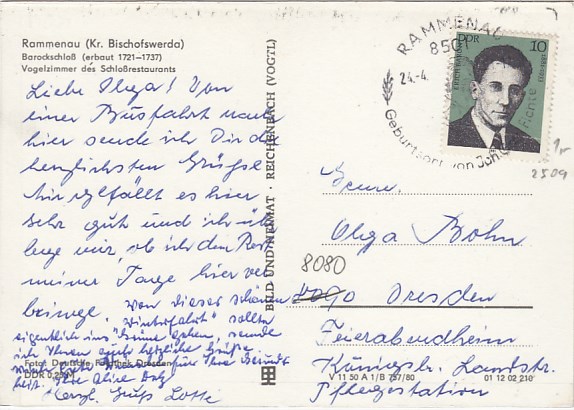 Rammenau (Kr. Bischofswerda)
Barockschloß (erbaut 1721–1737)
Vogelzimmer des Schloßrestaurants
Liebe Olga! Von
einer Busfahrt nach
hier sende ich Dir die
herzlichsten Grüße.
Mir gefällt es hier
sehr gut und ich über
lege mir, ob ich den Rest
meiner Tage hier ver
bringe. Von dieser schönen
"Winterfahrt" sollten
eigentlich ins Heime gehen sende
ich Ihnen auch herzliche Grüße
für Ihre Gesundt
heit. Ihre
Herzl. Gruß Lotte
Foto: Deutsche Fotothek Dresden
DDR 0,25 M
BILD UND HEIMAT · REICHENBACH (VOGTL)
RAMMENAU
8501
24.-4.
Geburtsort von Joh. G. Fichte
DDR
10
2509
Frau
Olga Bohn
8080
Dresden
Feierabendheim
Königsbr. Landstr.
Pflegestation
V 11 50 A 1/B 757/80
01 12 02 210